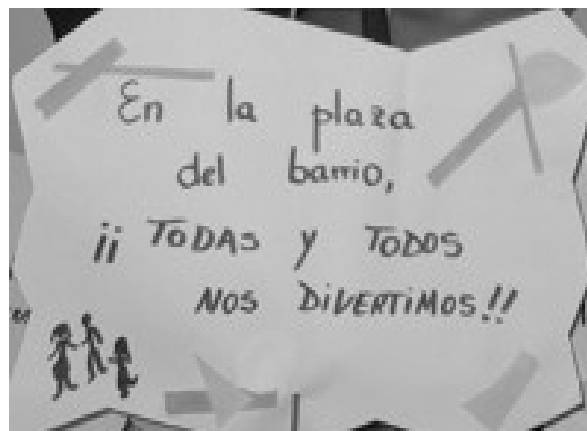 En la plaza
del barrio,
¡¡ TODAS y TODOS
NOS DiVERTiMOS!!